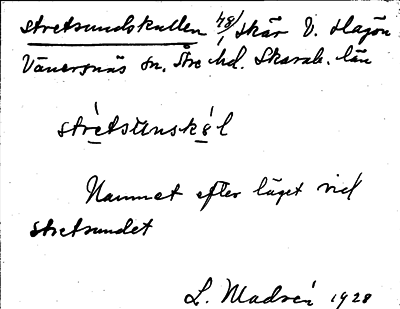 Stretsundskullen 48/ skär V. Hagön
Vänersnäs sn. Åse hd. Skarab. län
strètsunskél
Namnet efter läget vid
Stretsundet
L. Madsén 1928